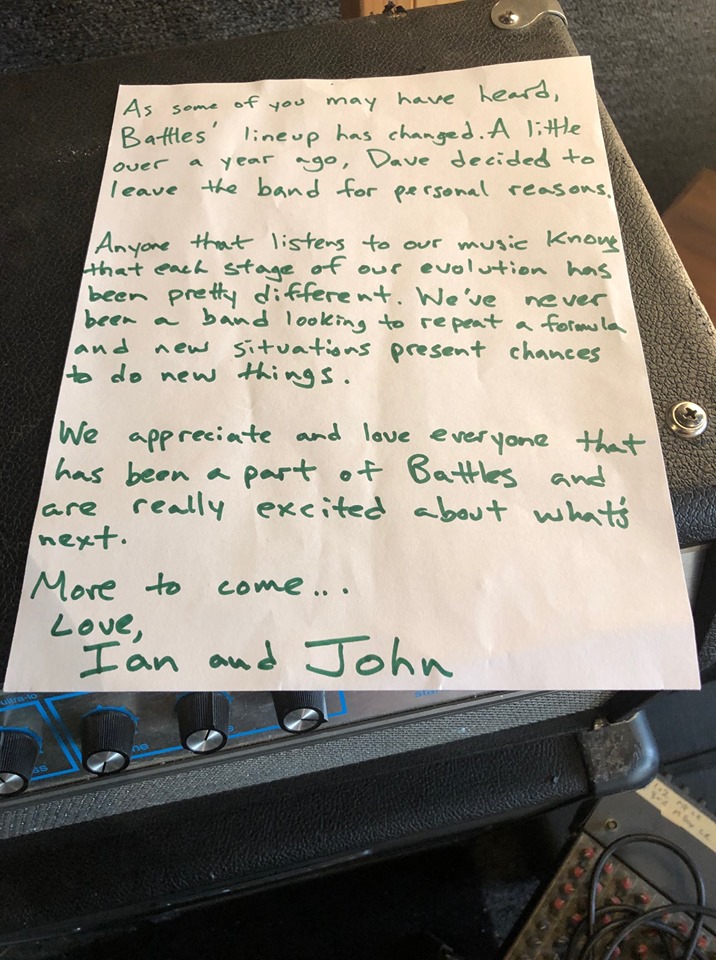 As some of you may have heard,
Battles' lineup has changed. A little
over a year ago, Dave decided to
leave the band for personal reasons.
Anyone that listens to our music knows
that each stage of our evolution has
been pretty different. We've never
been a band looking to repeat a formula
and new situations present chances
to do new things.
We appreciate and love everyone that
has been a part of Battles and
are really excited about what's
next.
More to come...
Love,
Ian and John
ultra-lo